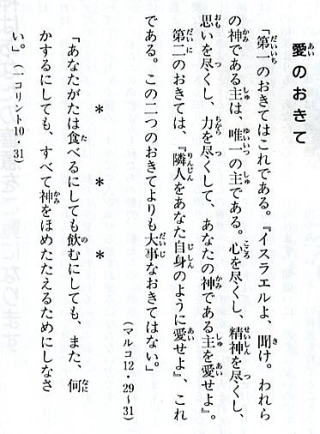 愛のおきて
「第一のおきてはこれである。『イスラエルよ、聞け。われら
の神である主は、唯一の主である。心を尽くし、精神を尽くし、
思いを尽くし、力を尽くして、あなたの神である主を愛せよ』。
第二のおきては、『隣人をあなた自身のように愛せよ』、これ
である。この二つのおきてよりも大事なおきてはない。」
(マルコ12・29~31)
* * *
「あなたがたは食べるにしても飲むにしても、また、何
かするにしても、すべて神をほめたたえるためにしなさ
い。」(一コリント10・31)